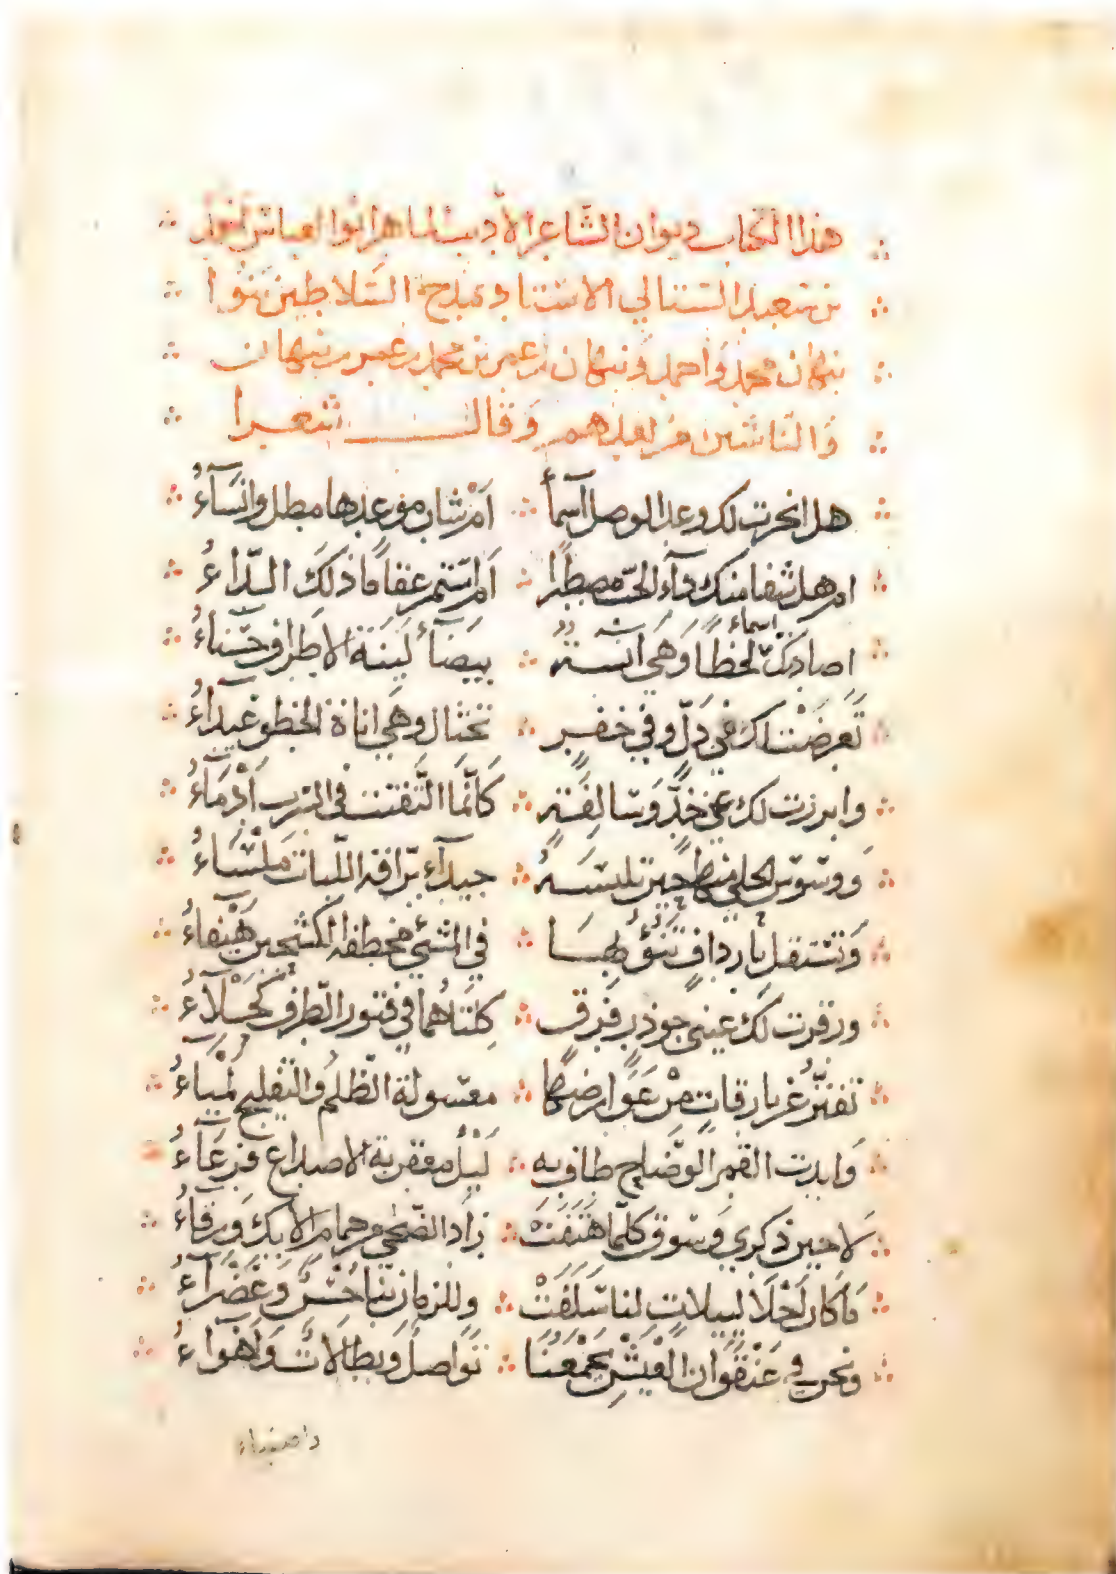 هذا الكتاب ديوان الشاعر الأديب الماهر ابوا العباس احمد
بن سعيد الستالي الاستاد ومدحة السلاطين بنوا
نبهان محمد واحمد ونبهان بن عمر بن محمد بن عمر بن نبهان
والناشئين من بعدهم وقال شعرا
هل انجزت لك وعد الوصل أسمآ أم شان موعدها مطل وانسآءُ
ام هل شفا منك دآء الحب مصطبرا أم استمر عقاما ذلك الدّاءُ
اصادتك لحظا أسماء وهي آنسة بيضآء لينة الاطراف حسناءُ
تعرضت لك في دلّ وفي خفر تختال وهي اناة الخطو غيداءُ
وابرزت لك عن خدّ وسالفة كأنّما التفتت في السرب أدمآءُ
ووسوس الحلي منها حين تلبسه جيدآء برّاقة اللّبات ملسَاءُ
وتستقل بارداف تنؤ بها في المشي مخطفة الكشحين هيفاءُ
ورقرقت لك عيني جوذر فرق كلتاهما في فتور الطرف كحلآءُ
تفترّ عن بارقات من عوارضها معسولة الظّلم والتفليج لمياءُ
وابدت القمر الوضّاح طاف به ليل معقربة الاصداغ فرعآءُ
لا حين ذكري وشوق كلّما هتفت رأد الضحى من حمام الأيك ورقاءُ
ما كان أحلا لييلات لنا سلفت وللزمان بنا حسن وغضرآءُ
ونحن في عنفوان العيش يجمعنا تواصل وبطالات وأهواءُ